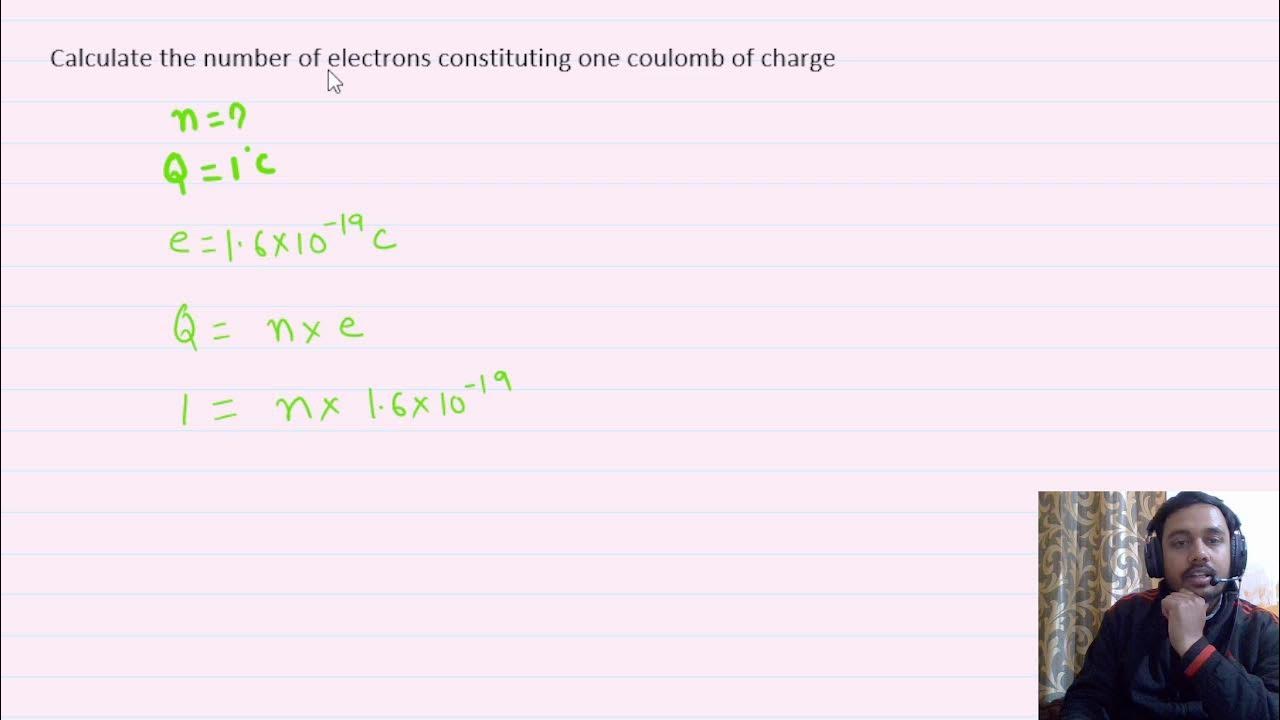 Calculate the number of electrons constituting one coulomb of charge
n = ?
Q = 1 C
e = 1.6 × 10⁻¹⁹ C
Q = n × e
1 = n × 1.6 × 10⁻¹⁹